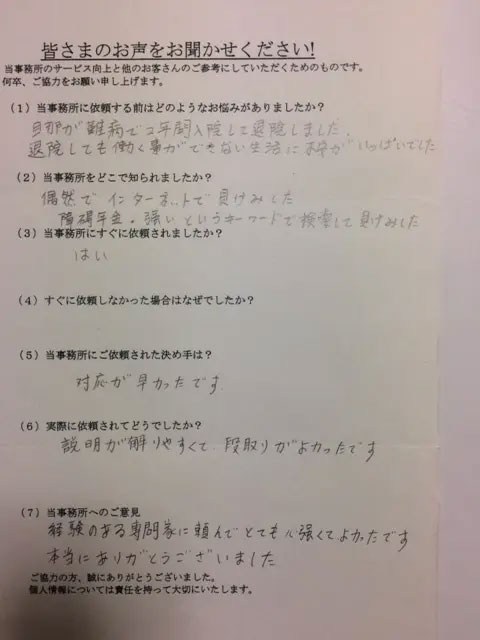 皆さまのお声をお聞かせください!
当事務所のサービス向上と他のお客さんのご参考にしていただくためのものです。
何卒、ご協力をお願い申し上げます。
(1)当事務所に依頼する前はどのようなお悩みがありましたか?
旦那が難病で2年間入院して退院しました.
退院しても働く事ができない生活に不安がいっぱいでした
(2)当事務所をどこで知られましたか?
偶然でインターネットで見けみした
障碍年金・強いというキーワードで検索して見けみした
(3)当事務所にすぐに依頼されましたか?
はい
(4)すぐに依頼しなかった場合はなぜでしたか?
(5)当事務所にご依頼された決め手は?
対応が早かったです.
(6)実際に依頼されてどうでしたか?
説明が解りやすくて、段取りがよかったです
(7)当事務所へのご意見
経験のある専門家に頼んでとても心強くてよかったです
本当にありがとうございました
ご協力の方、誠にありがとうございました。
個人情報については責任を持って大切にいたします。